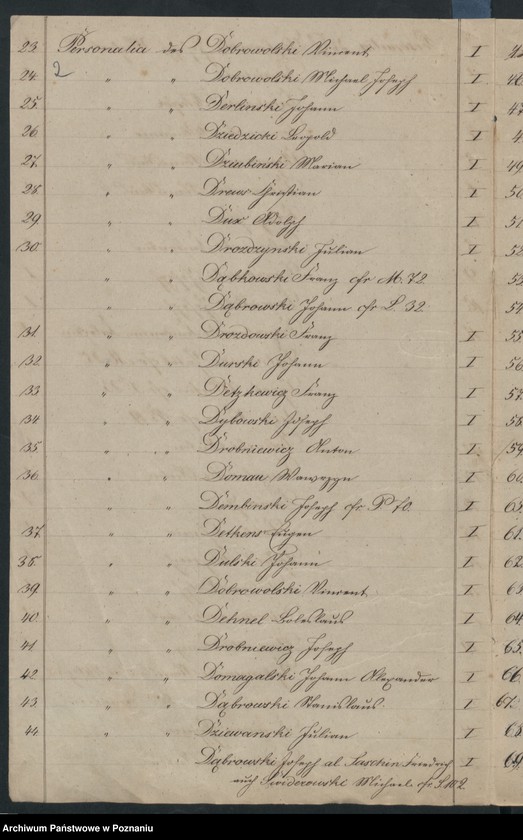 23. Personalia des Dobrowolski Vincent I
24. 2 " " Dobrowolski Michael Joseph I 46
25. " " Derlinski Johann I 47
26. " " Dziedzicki Leopold I 4
27. " " Dziubiński Marian I 49
28. " " Drews Christian I 50
29. " " Dux Adolph I 51
30. " " Drozdzynski Julian I 52
" " Dąbkowski Franz cfr M. 72. I 53
" " Dąbrowski Johann cfr L. 32. I 54
31. " " Drozdowski Franz I 55
32. " " Durski Johann I 56
33 " " Detzkewicz Franz I 57
34 " " Dybowski Joseph I 58
35 " " Drobniewicz Anton I 59
36 " " Domau Wawrzyn I 60
" " Dembinski Joseph cfr P 70. I
37. " " Dethens Eugen I 61
38. " " Dulski Johann I 62
39. " " Dobrowolski Vincent I 63
40. " " Dehnel Boleslaus I 64
41 " " Drobniewicz Joseph I 65
42 " " Domagalski Johann Alexander I 66
43. " " Dąbrowski Stanislaus I 67.
44. " " Dziewanski Julian I 68
Dąbrowski Joseph al Friedrich I 69
auch Swiderowski Michael cfr S.
Archiwum Państwowe w Poznaniu
Archiwum Państwowe w Poznaniu